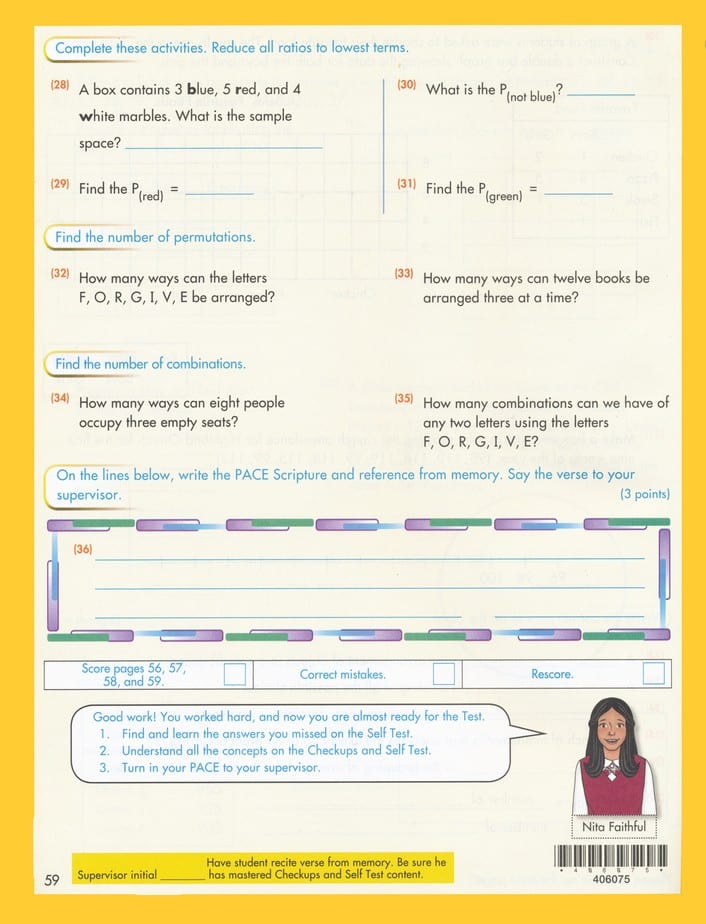 Complete these activities. Reduce all ratios to lowest terms.
(28) A box contains 3 blue, 5 red, and 4
white marbles. What is the sample
space?
(29) Find the P(red) =
(30) What is the P(not blue)?
(31) Find the P(green) =
Find the number of permutations.
(32) How many ways can the letters
F, O, R, G, I, V, E be arranged?
(33) How many ways can twelve books be
arranged three at a time?
Find the number of combinations.
(34) How many ways can eight people
occupy three empty seats?
(35) How many combinations can we have of
any two letters using the letters
F, O, R, G, I, V, E?
On the lines below, write the PACE Scripture and reference from memory. Say the verse to your
supervisor. (3 points)
(36)
Score pages 56, 57,
58, and 59.
Correct mistakes.
Rescore.
Good work! You worked hard, and now you are almost ready for the Test.
1. Find and learn the answers you missed on the Self Test.
2. Understand all the concepts on the Checkups and Self Test.
3. Turn in your PACE to your supervisor.
Nita Faithful
59
Supervisor initial
Have student recite verse from memory. Be sure he
has mastered Checkups and Self Test content.
406075